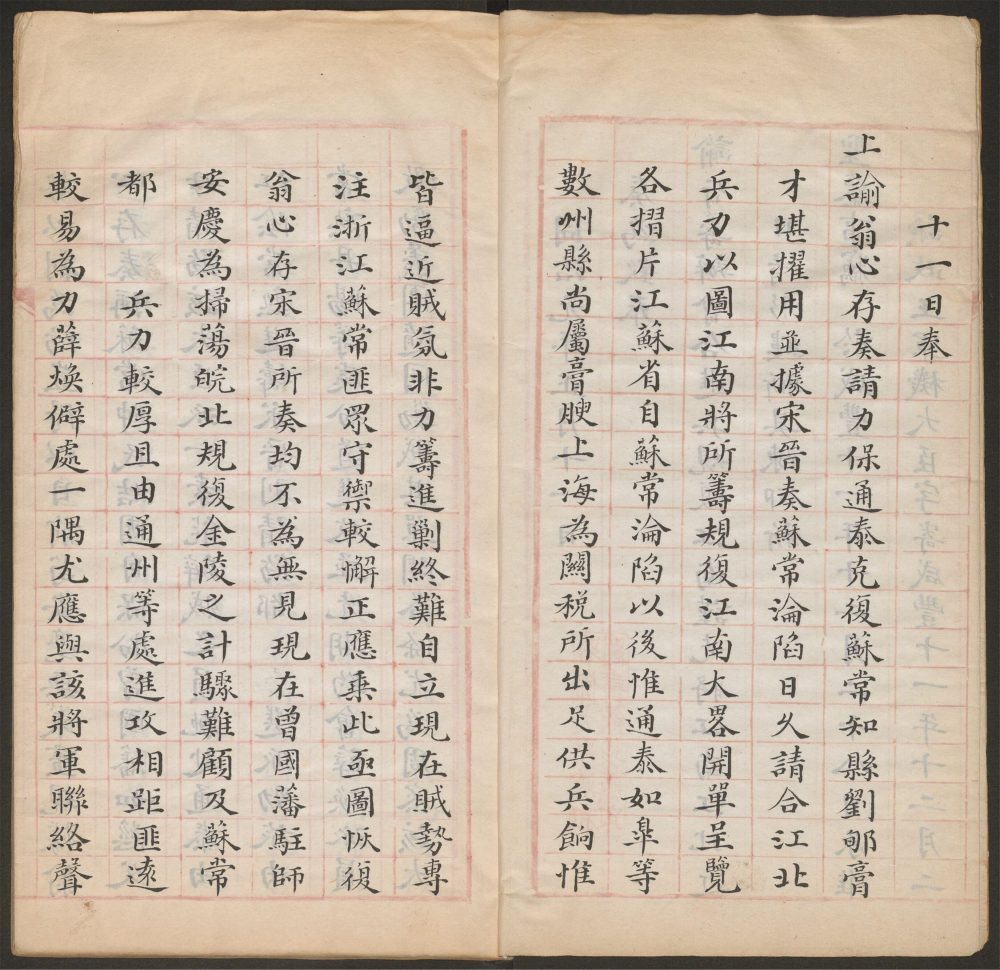 十一日奉
上諭翁心存奏請力保通泰克復蘇常知縣劉郇膏
才堪擢用並據宋晉奏蘇常淪陷日久請合江北
兵力以圖江南將所籌規復江南大畧開單呈覽
各摺片江蘇省自蘇常淪陷以後惟通泰如臯等
數州縣尚屬膏腴上海為關稅所出足供兵餉惟
皆逼近賊氛非力籌進剿終難自立現在賊勢專
注浙江蘇常匪眾守禦較懈正應乘此亟圖恢復
翁心存宋晉所奏均不為無見現在曾國藩駐師
安慶為掃蕩皖北規復金陵之計驟難顧及蘇常
都 兵力較厚且由通州等處進攻相距匪遠
較易為力薛煥僻處一隅尤應與該將軍聯絡聲